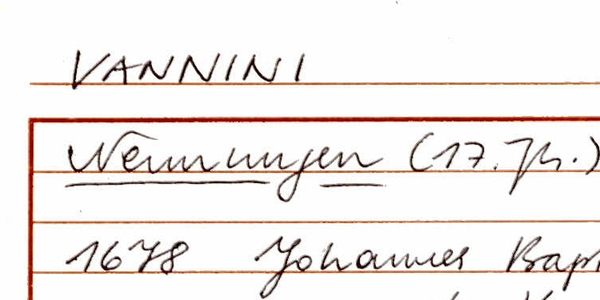 VANNINI
Nennungen (17. Jh.)
1678 Johannes Bapt